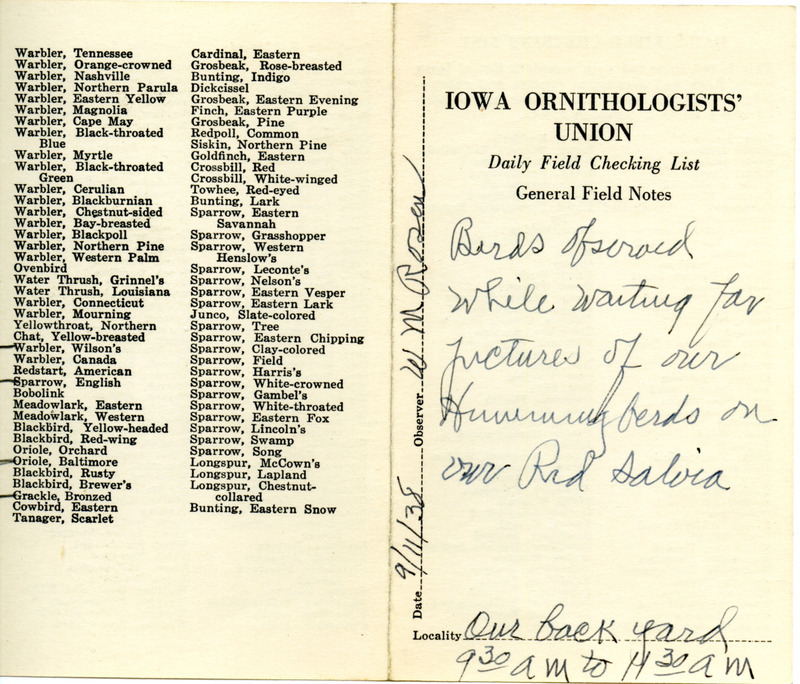 Warbler, Tennessee
Warbler, Orange-crowned
Warbler, Nashville
Warbler, Northern Parula
Warbler, Eastern Yellow
Warbler, Magnolia
Warbler, Cape May
Warbler, Black-throated
Blue
Warbler, Myrtle
Warbler, Black-throated
Green
Warbler, Cerulian
Warbler, Blackburnian
Warbler, Chestnut-sided
Warbler, Bay-breasted
Warbler, Blackpoll
Warbler, Northern Pine
Warbler, Western Palm
Ovenbird
Water Thrush, Grinnel's
Water Thrush, Louisiana
Warbler, Connecticut
Warbler, Mourning
Yellowthroat, Northern
Chat, Yellow-breasted
Warbler, Wilson's
Warbler, Canada
Redstart, American
Sparrow, English
Bobolink
Meadowlark, Eastern
Meadowlark, Western
Blackbird, Yellow-headed
Blackbird, Red-wing
Oriole, Orchard
Oriole, Baltimore
Blackbird, Rusty
Blackbird, Brewer's
Grackle, Bronzed
Cowbird, Eastern
Tanager, Scarlet
Cardinal, Eastern
Grosbeak, Rose-breasted
Bunting, Indigo
Dickcissel
Grosbeak, Eastern Evening
Finch, Eastern Purple
Grosbeak, Pine
Redpoll, Common
Siskin, Northern Pine
Goldfinch, Eastern
Crossbill, Red
Crossbill, White-winged
Towhee, Red-eyed
Bunting, Lark
Sparrow, Eastern
Savannah
Sparrow, Grasshopper
Sparrow, Western
Henslow's
Sparrow, Leconte's
Sparrow, Nelson's
Sparrow, Eastern Vesper
Sparrow, Eastern Lark
Junco, Slate-colored
Sparrow, Tree
Sparrow, Eastern Chipping
Sparrow, Clay-colored
Sparrow, Field
Sparrow, Harris's
Sparrow, White-crowned
Sparrow, Gambel's
Sparrow, White-throated
Sparrow, Eastern Fox
Sparrow, Lincoln's
Sparrow, Swamp
Sparrow, Song
Longspur, McCown's
Longspur, Lapland
Longspur, Chestnut-
collared
Bunting, Eastern Snow
Date 9/11/38 Observer W M Rosen
IOWA ORNITHOLOGISTS'
UNION
Daily Field Checking List
General Field Notes
Birds observed
While waiting for
pictures of our
Hummingbirds on
our Red Salvia
Locality Our back yard
9 30 am to 11 30 am